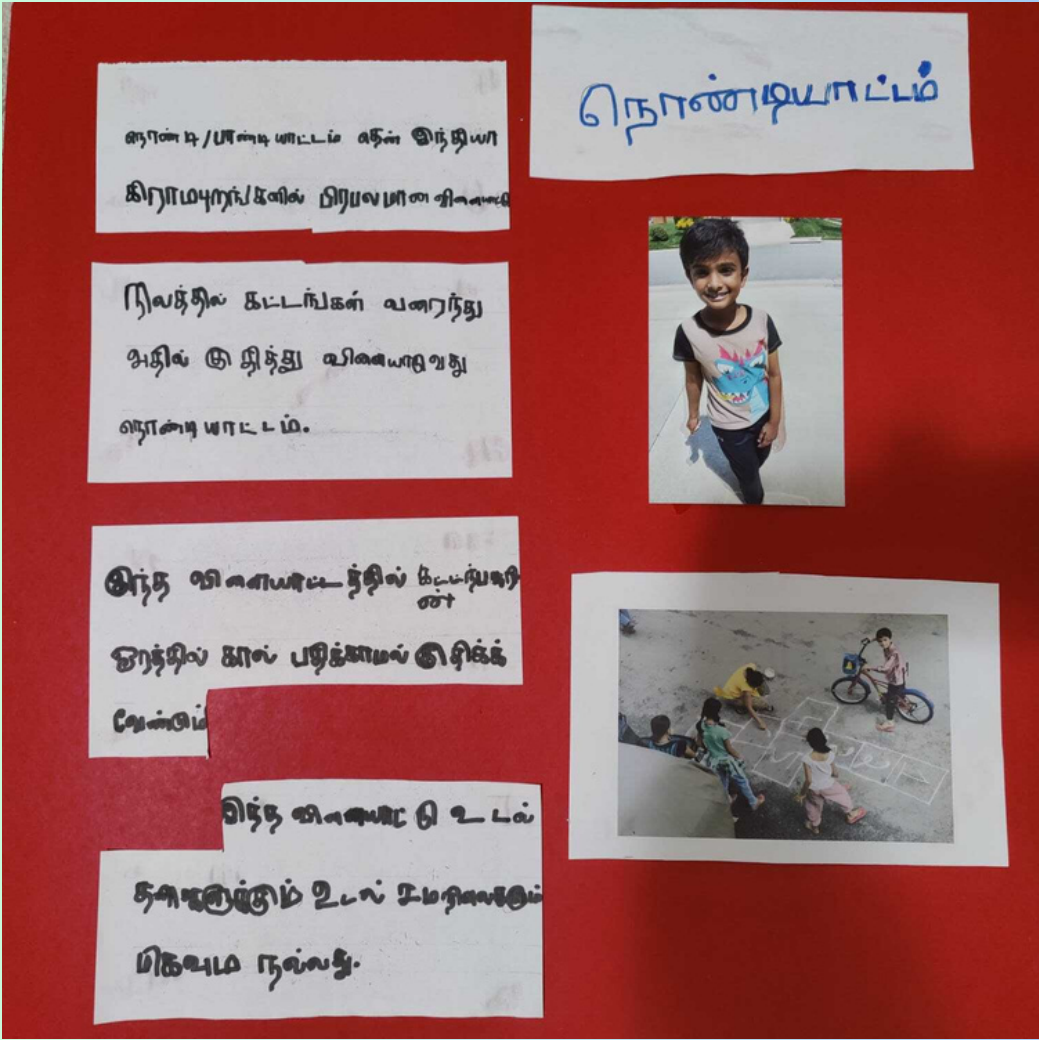 நொண்டியாட்டம்
நொண்டி/பாண்டியாட்டம் தென் இந்தியா
கிராமபுறங்களில் பிரபலமான விளையாட்டு
நிலத்தில் கட்டங்கள் வரைந்து
அதில் குதித்து விளையாடுவது
நொண்டியாட்டம்.
இந்த விளையாட்டத்தில்
ஓரத்தில் கால் பதிக்காமல் குதிக்க்
வேண்டும்
இந்த விளையாட்டு உடல்
உடல் சமநிலைக்கும்
மிகவும நல்லது.